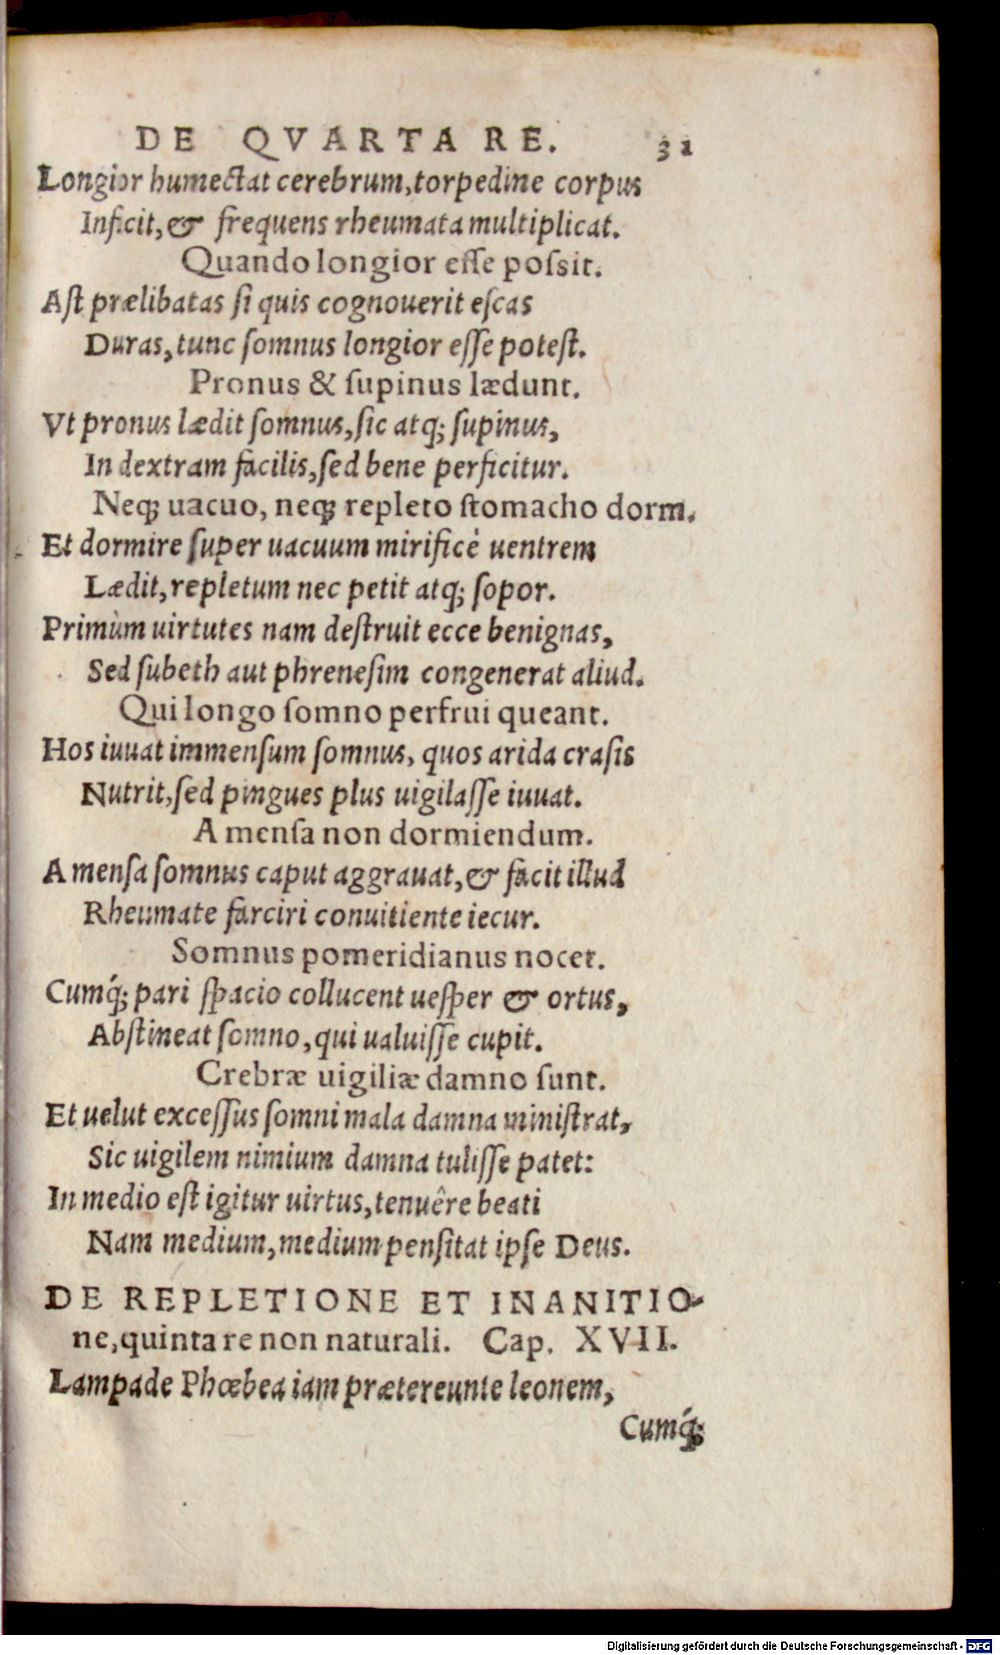 DE QVARTA RE. 31
Longior humectat cerebrum, torpedine corpus
Inficit, & frequens rheumata multiplicat.
Quando longior esse possit.
Ast prælibatas si quis cognouerit escas
Duras, tunc somnus longior esse potest.
Pronus & supinus lædunt.
Vt pronus lædit somnus, sic atq; supinus,
In dextram facilis, sed bene perficitur.
Neq; uacuo, neq; repleto stomacho dorm.
Et dormire super uacuum mirificè uentrem
Lædit, repletum nec petit atq; sopor.
Primùm uirtutes nam destruit ecce benignas,
Sed subeth aut phrenesim congenerat aliud.
Qui longo somno perfrui queant.
Hos iuuat immensum somnus, quos arida crasis
Nutrit, sed pingues plus uigilasse iuuat.
A mensa non dormiendum.
A mensa somnus caput aggrauat, & facit illud
Rheumate farciri conuitiente iecur.
Somnus pomeridianus nocet.
Cumq́; pari spacio collucent uesper & ortus,
Abstineat somno, qui ualuisse cupit.
Crebræ uigiliæ damno sunt.
Et uelut excessus somni mala damna ministrat,
Sic uigilem nimium damna tulisse patet:
In medio est igitur uirtus, tenuêre beati
Nam medium, medium pensitat ipse Deus.
DE REPLETIONE ET INANITIO-
ne, quinta re non naturali. Cap. XVII.
Lampade Phœbea iam prætereunte leonem,
Cumq́;
Digitalisierung gefördert durch die Deutsche Forschungsgemeinschaft - DFG